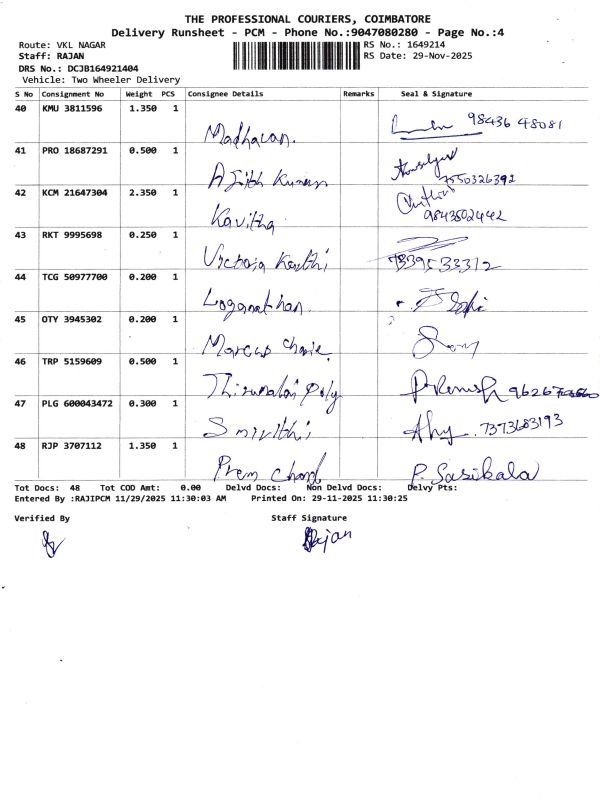 THE PROFESSIONAL COURIERS, COIMBATORE
Delivery Runsheet - PCM - Phone No.:9047080280 - Page No.:4
Route: VKL NAGAR RS No.: 1649214
Staff: RAJAN RS Date: 29-Nov-2025
DRS No.: DCJB164921404
Vehicle: Two Wheeler Delivery
S No Consignment No Weight PCS Consignee Details Remarks Seal & Signature
40 KMU 3811596 1.350 1
Madhavan. 98436 48081
41 PRO 18687291 0.500 1
Ajith Kumar 7550326392
42 KCM 21647304 2.350 1
Kavitha 9843502442
43 RKT 9995698 0.250 1
Victoria Keerthi 7339533312
44 TCG 50977700 0.200 1
Loganathan.
45 OTY 3945302 0.200 1
Marcus
46 TRP 5159609 0.500 1
Thirumalai Poly
47 PLG 600043472 0.300 1
Smirithi 7373683193
48 RJP 3707112 1.350 1
Prem Chand P. Sasikala
Tot Docs: 48 Tot COD Amt: 0.00 Delvd Docs: Non Delvd Docs: Delvy Pts:
Entered By :RAJIPCM 11/29/2025 11:30:03 AM Printed On: 29-11-2025 11:30:25
Verified By Staff Signature
Rajan